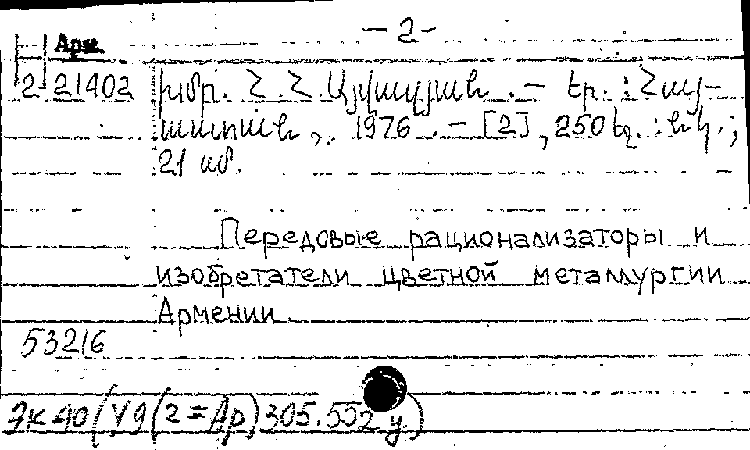 - 2 -
Арм.
2-21402 խմբ. Հ. Հ. Այվազյան. – Եր. : Հայ-
աստան, 1976. – [2], 250 էջ. : նկ. ;
21 սմ.
Передовые рационализаторы и
изобретатели цветной металлургии
Армении.
53216
9(2=Ар)305.552 у)